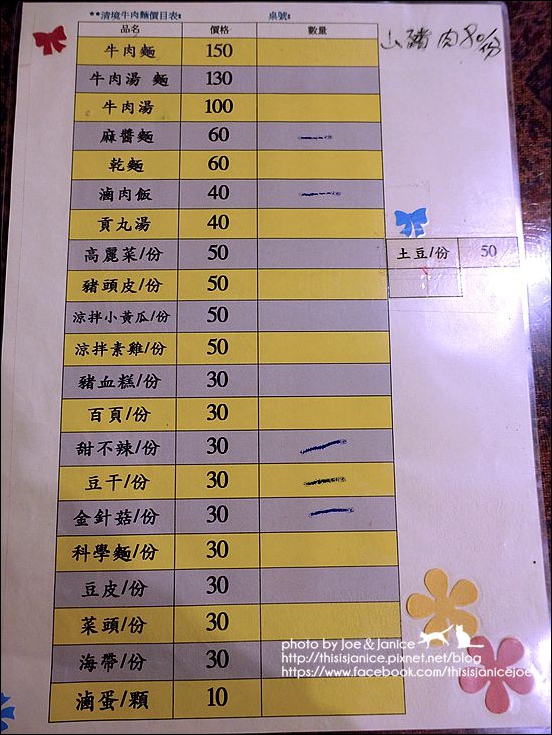 **清境牛肉麵價目表: 桌號:
品名 價格 數量
牛肉麵 150
牛肉湯 麵 130
牛肉湯 100
麻醬麵 60
乾麵 60
滷肉飯 40
貢丸湯 40
高麗菜/份 50
豬頭皮/份 50
涼拌小黃瓜/份 50
涼拌素雞/份 50
豬血糕/份 30
百頁/份 30
甜不辣/份 30
豆干/份 30
金針菇/份 30
科學麵/份 30
豆皮/份 30
菜頭/份 30
海帶/份 30
滷蛋/顆 10
山豬肉80/份
土豆/份 50
photo by Joe & Janice
http://thisisjanice.pixnet.net/blog
https://www.facebook.com/thisisjanicejoe